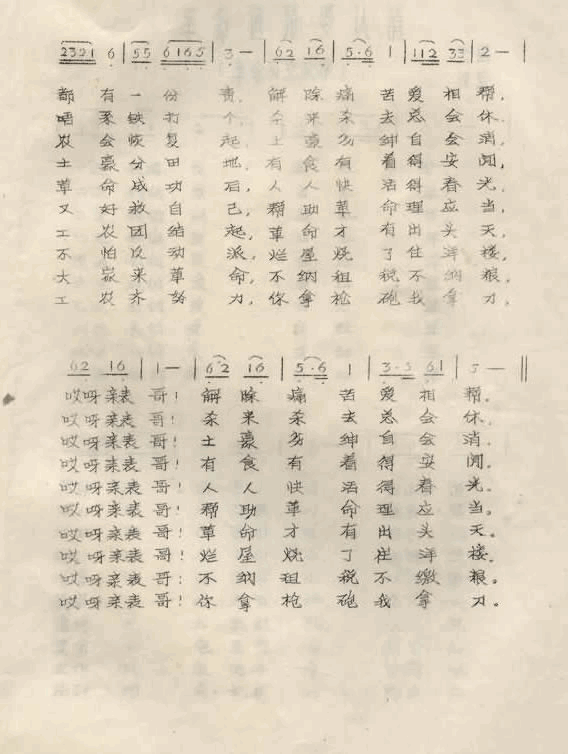 2321 6 | 55 6165 | 3 — | 62 16 | 5·6 1 | 112 33 | 2 — |
都有一份责,解除痛苦爱相帮,
唔系铁打个,杀来杀去总会休,
农会恢复起,土豪劣绅自会消,
土豪分田地,有食有着得安闻,
革命成功后,人人快活得春光,
又好救自己,帮助革命理应当,
工农团结起,革命才有出头天,
不怕反动派,烂屋烧了住洋楼,
大家来革命,不纳租税不纳粮,
工农齐努力,你拿枪砲我拿刀,
62 16 | 1 — | 62 16 | 5·6 1 | 3·5 61 | 5 — ‖
哎呀亲表哥!解除痛苦爱相帮。
哎呀亲表哥!杀来杀去总会休。
哎呀亲表哥!土豪劣绅自会消。
哎呀亲表哥!有食有着得安闻。
哎呀亲表哥!人人快活得春光。
哎呀亲表哥!帮助革命理应当。
哎呀亲表哥!革命才有出头天。
哎呀亲表哥!烂屋烧了住洋楼。
哎呀亲表哥!不纳租税不缴粮。
哎呀亲表哥!你拿枪砲我拿刀。